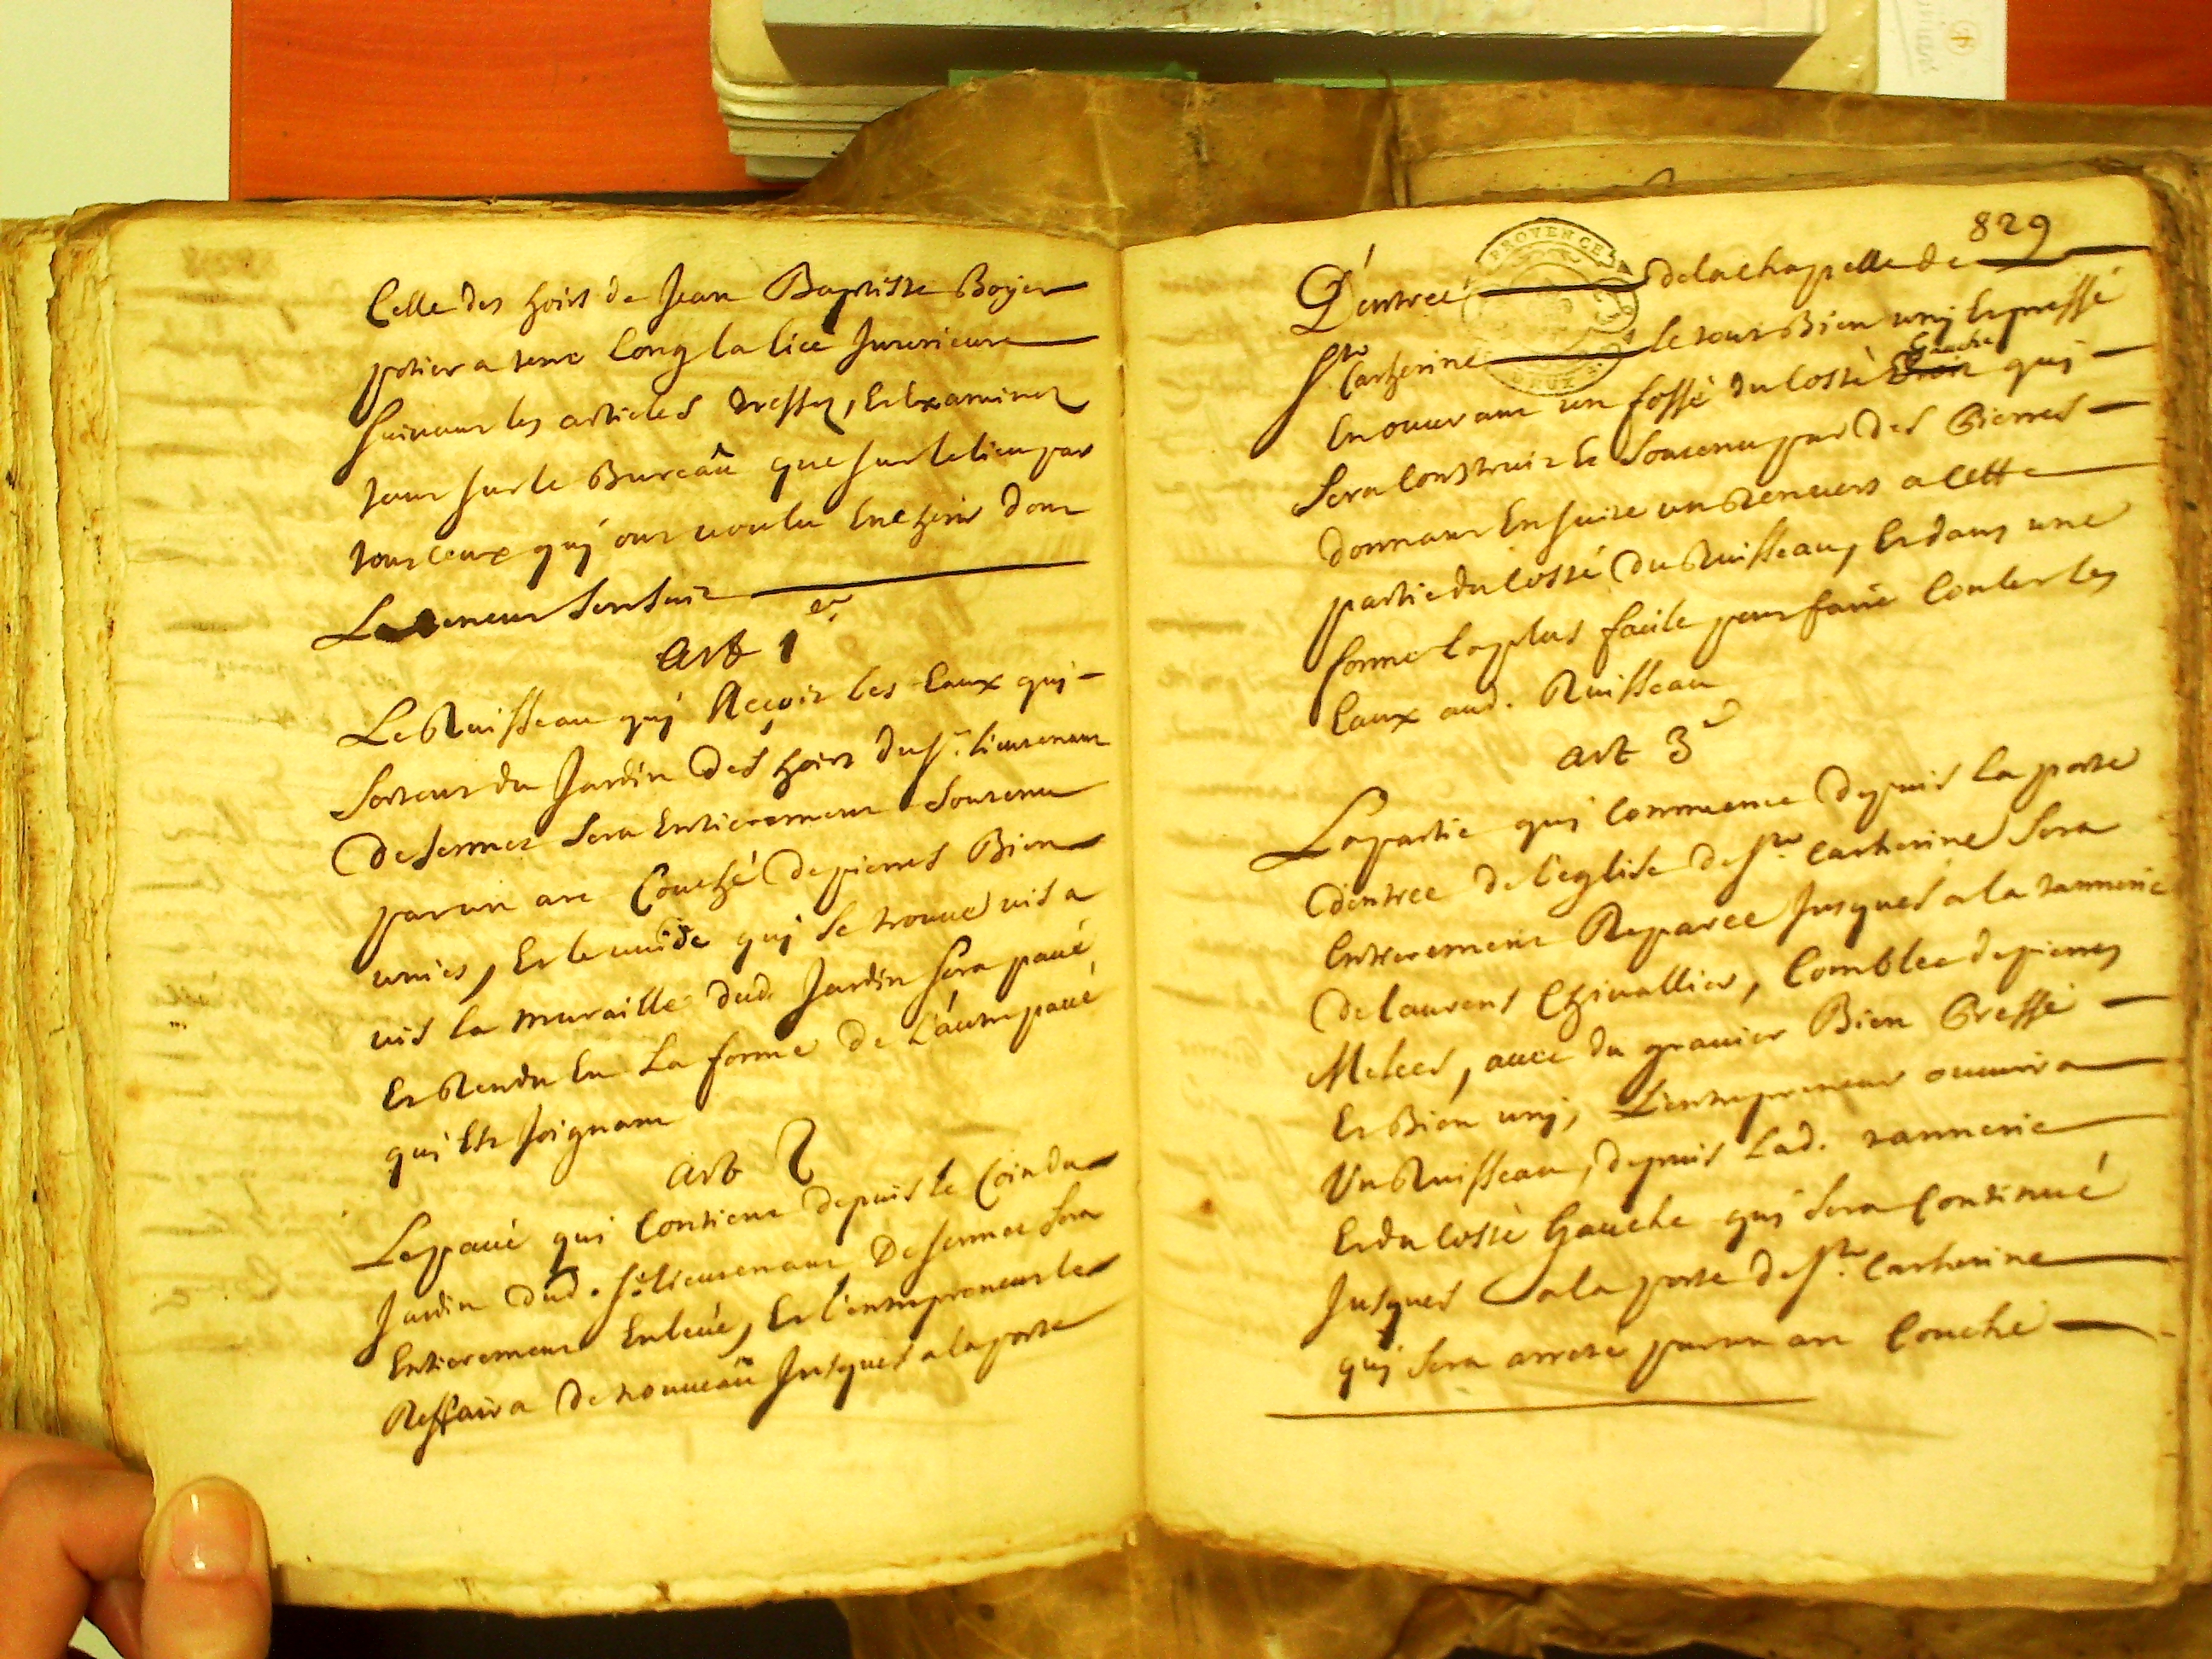 Celle des hoirs de Jean Baptiste Boyer
potier a terre long la lice Interieure
suivant les articles dressez, Et Examinez
tant sur le Bureaü que sur le lieu par
tous ceux quj ont voulu Encherir dont
La teneur s'en suit
art 1er
Le Ruisseau quj Reçoit les Eaux quj
sortent du Jardin des hoirs du sr. lieutenant
de fermez sera Entierement soutenu
par un arc Couché de pierres Bien
unies, Et le vuide quj se trouve vis a
vis la muraille dud. Jardin sera pavé
Et Rendu En La forme de L'autre pavé
qui Est Joignant
art 2
Le pavé qui Contient depuis le Coin du
Jardin dud. sr. lieutenant De fermez sera
Entierement Enlevé, Et l'entrepreneur le
Reffaira de nouveaü Jusques a la porte
829
PROVENCE
D'entrée de la chapelle de
Ste Catherine le tout Bien unj Et pressé
En ouvrant un fossé du Costé Gauche quj
sera Construit Et Soutenu par des Pierres
donnant Ensuite un Renvers a Cette
partie du Costé du Ruisseau, Et dans une
forme la plus facile pour faire Couler les
Eaux aud. Ruisseau
art 3e
La partie qui Commence depuis la porte
d'entree de l'eglise de Ste Catherine sera
Entierement Reparée Jusques a la tannerie
de laurens Chivallier, Comblée de pierres
Melees, avec du gravier Bien Pressé
Et Bien unj, L'entrepreneur ouvrira
Un Ruisseau, depuis Lad. tannerie
Et du Costé Gauche quj sera Continué
Jusques a la porte de Ste Catherine
quj sera arreté par un arc Couché